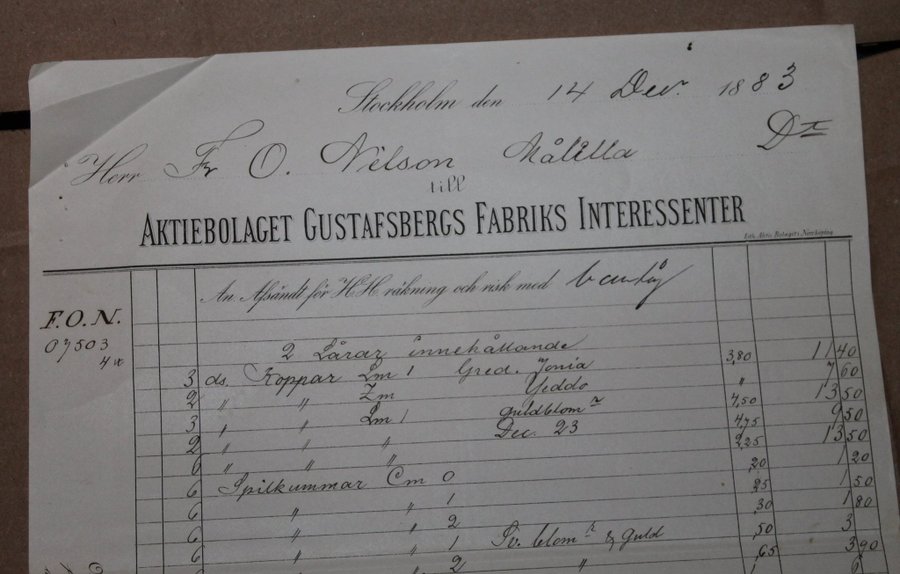 Stockholm den 14 Dec. 1883
Herr Fr O. Nilson Målilla Dt
till
AKTIEBOLAGET GUSTAFSBERGS FABRIKS INTERESSENTER
Lith. Aktie Bolaget i Norrköping
An Afsändt för HH räkning och risk med
F.O.N.
07503
2 Lårar innehållande
3 ds. Koppar Lm 1 Gred. Jonia 3,80 11 40
2 " " Zm Yeddo " 7 60
3 " " Lm 1 guldblom r 4,50 13 50
2 " " " Dec. 23 4,75 9 50
6 " " " 2,25 13 50
6 Spilkummar Cm 0 ,20 1 20
6 " " 1 ,25 1 50
6 " " 2 ,30 1 80
6 " " 1 Sv. blom r & guld ,50 3
6 " " 2 " ,65 3 90